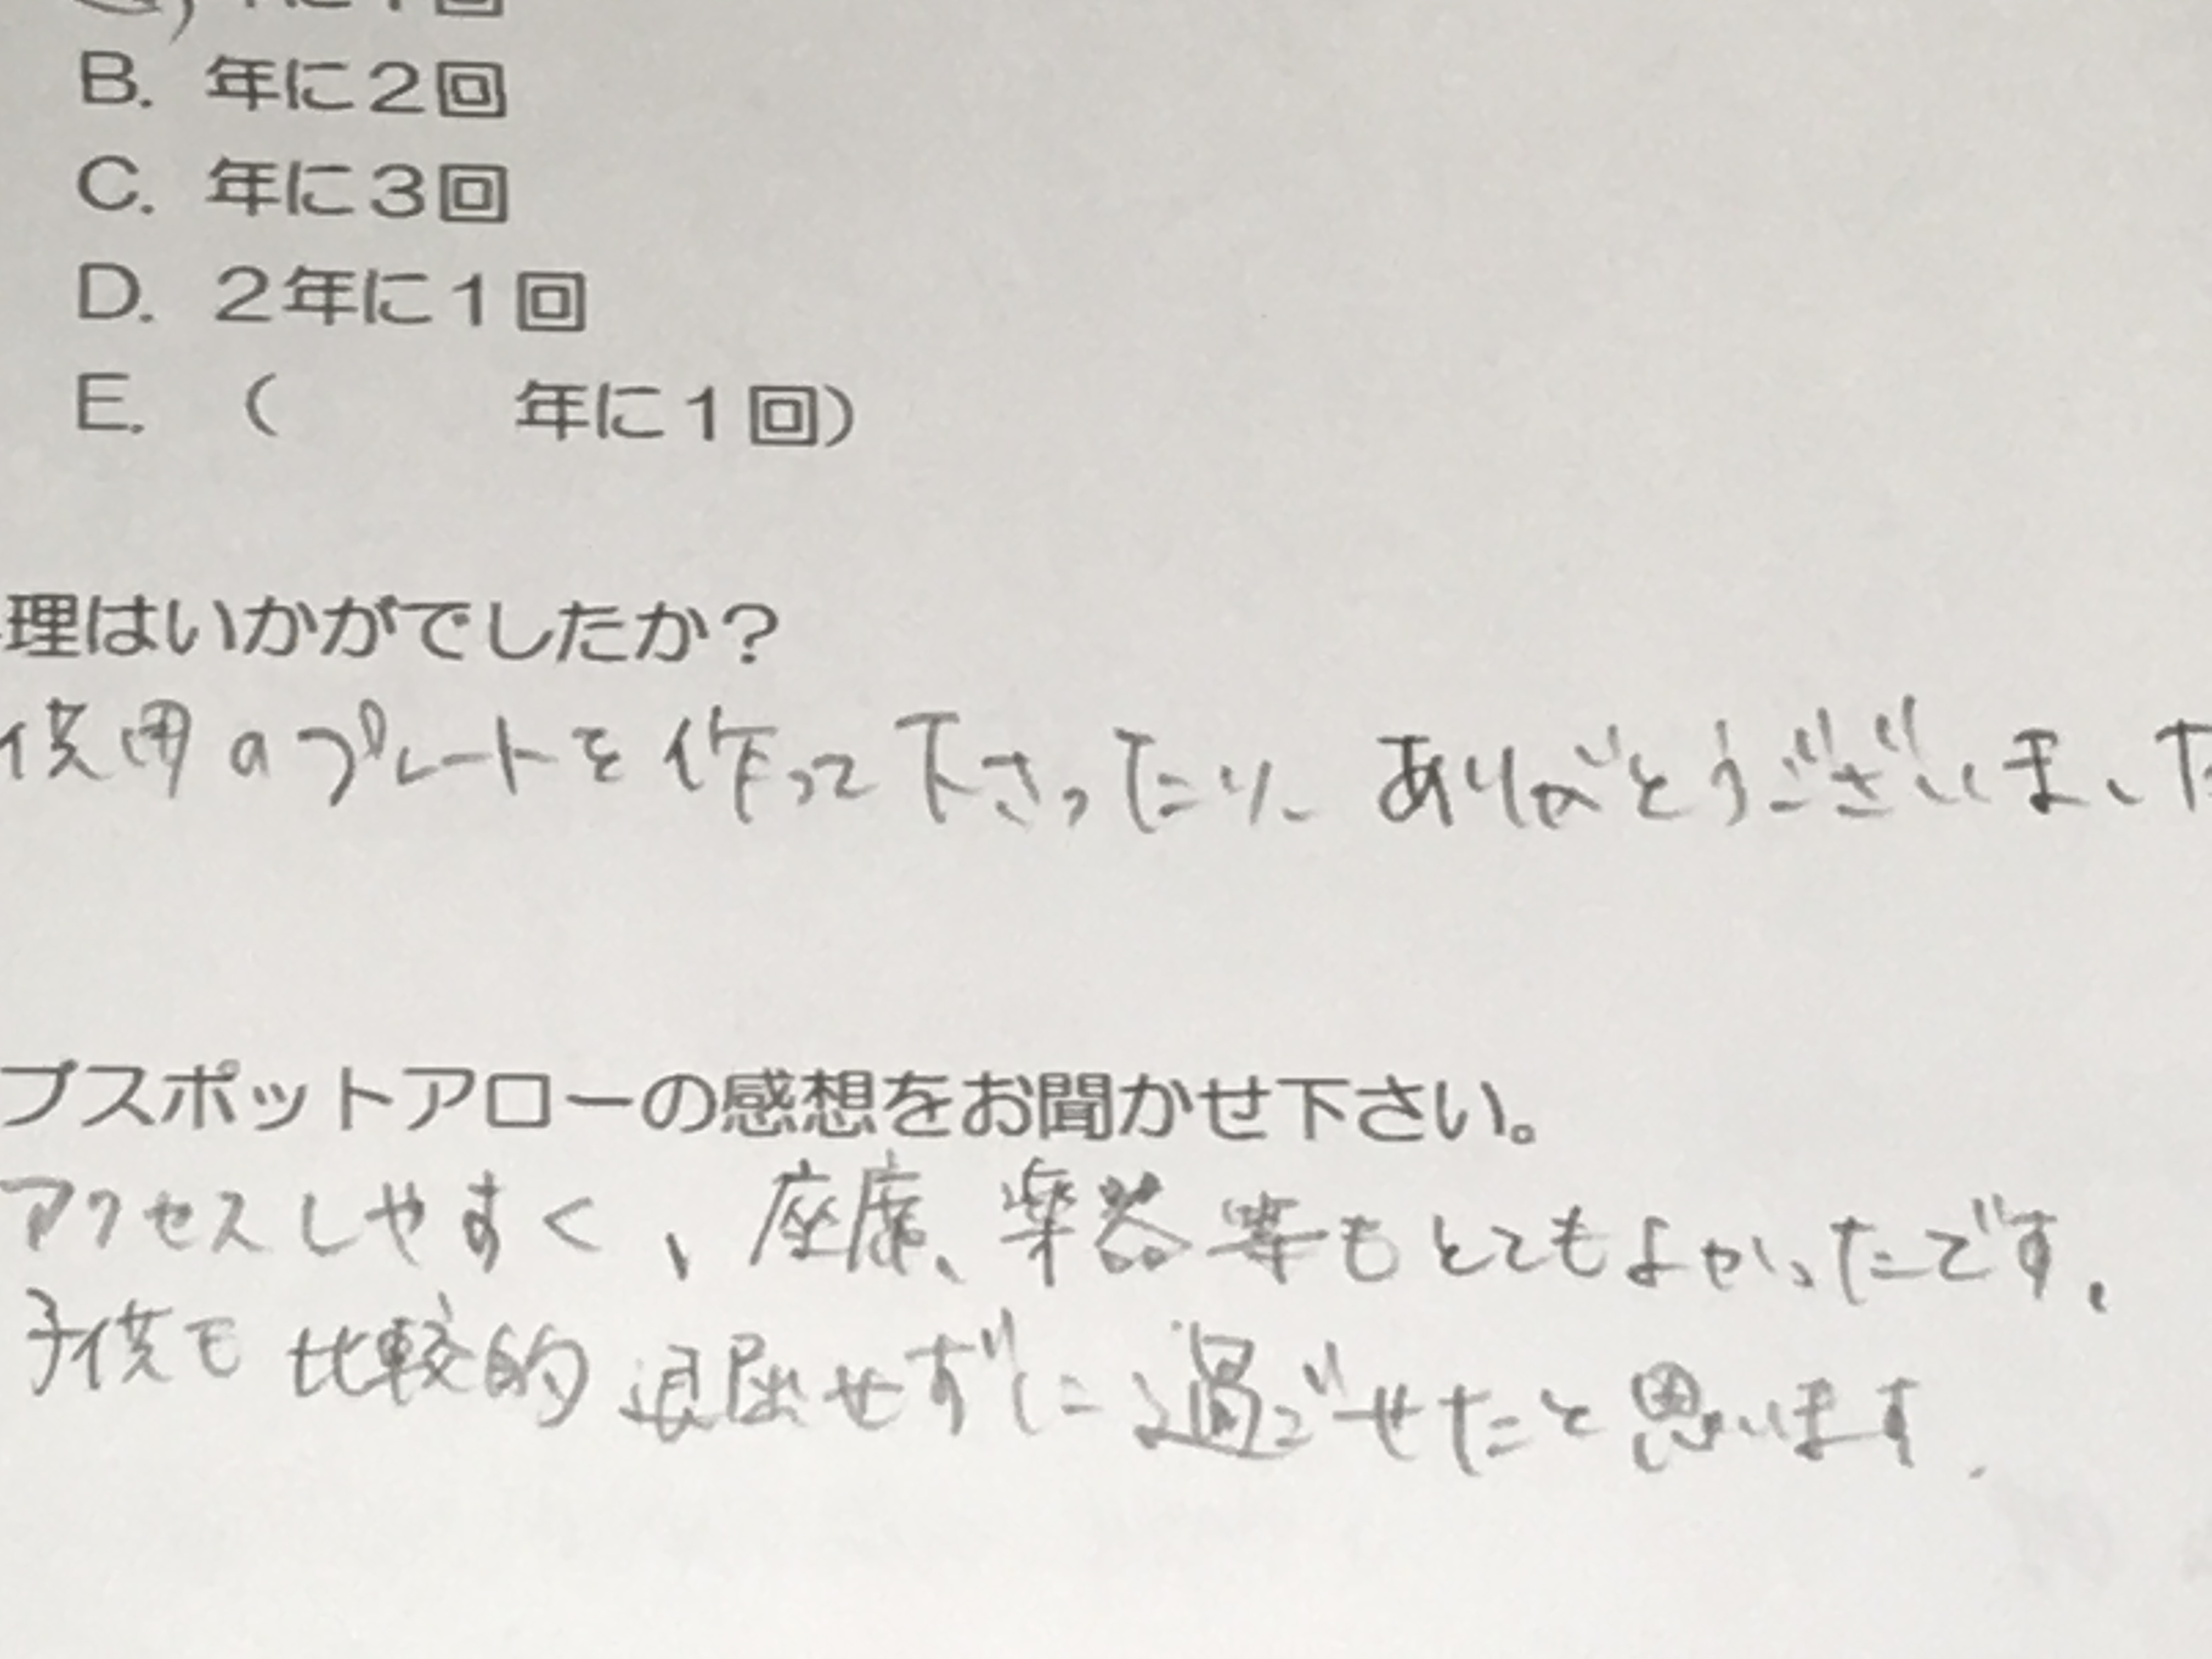 年に1回
B. 年に2回
C. 年に3回
D. 2年に1回
E. (　　　年に1回)
理はいかがでしたか?
供用のプレートを作って下さったり、ありがとうございました
プスポットアローの感想をお聞かせ下さい。
アクセスしやすく、座席、楽器等もとてもよかったです。
子供も比較的退屈せずに過ごせたと思います.